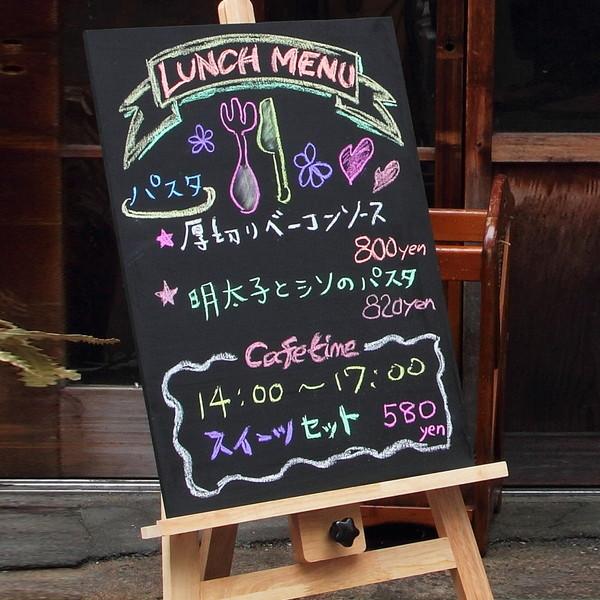 LUNCH MENU
パスタ
★厚切りベーコンソース
800yen
★明太子とシソのパスタ
820yen
Cafetime
14:00～17:00
スイーツセット 580yen